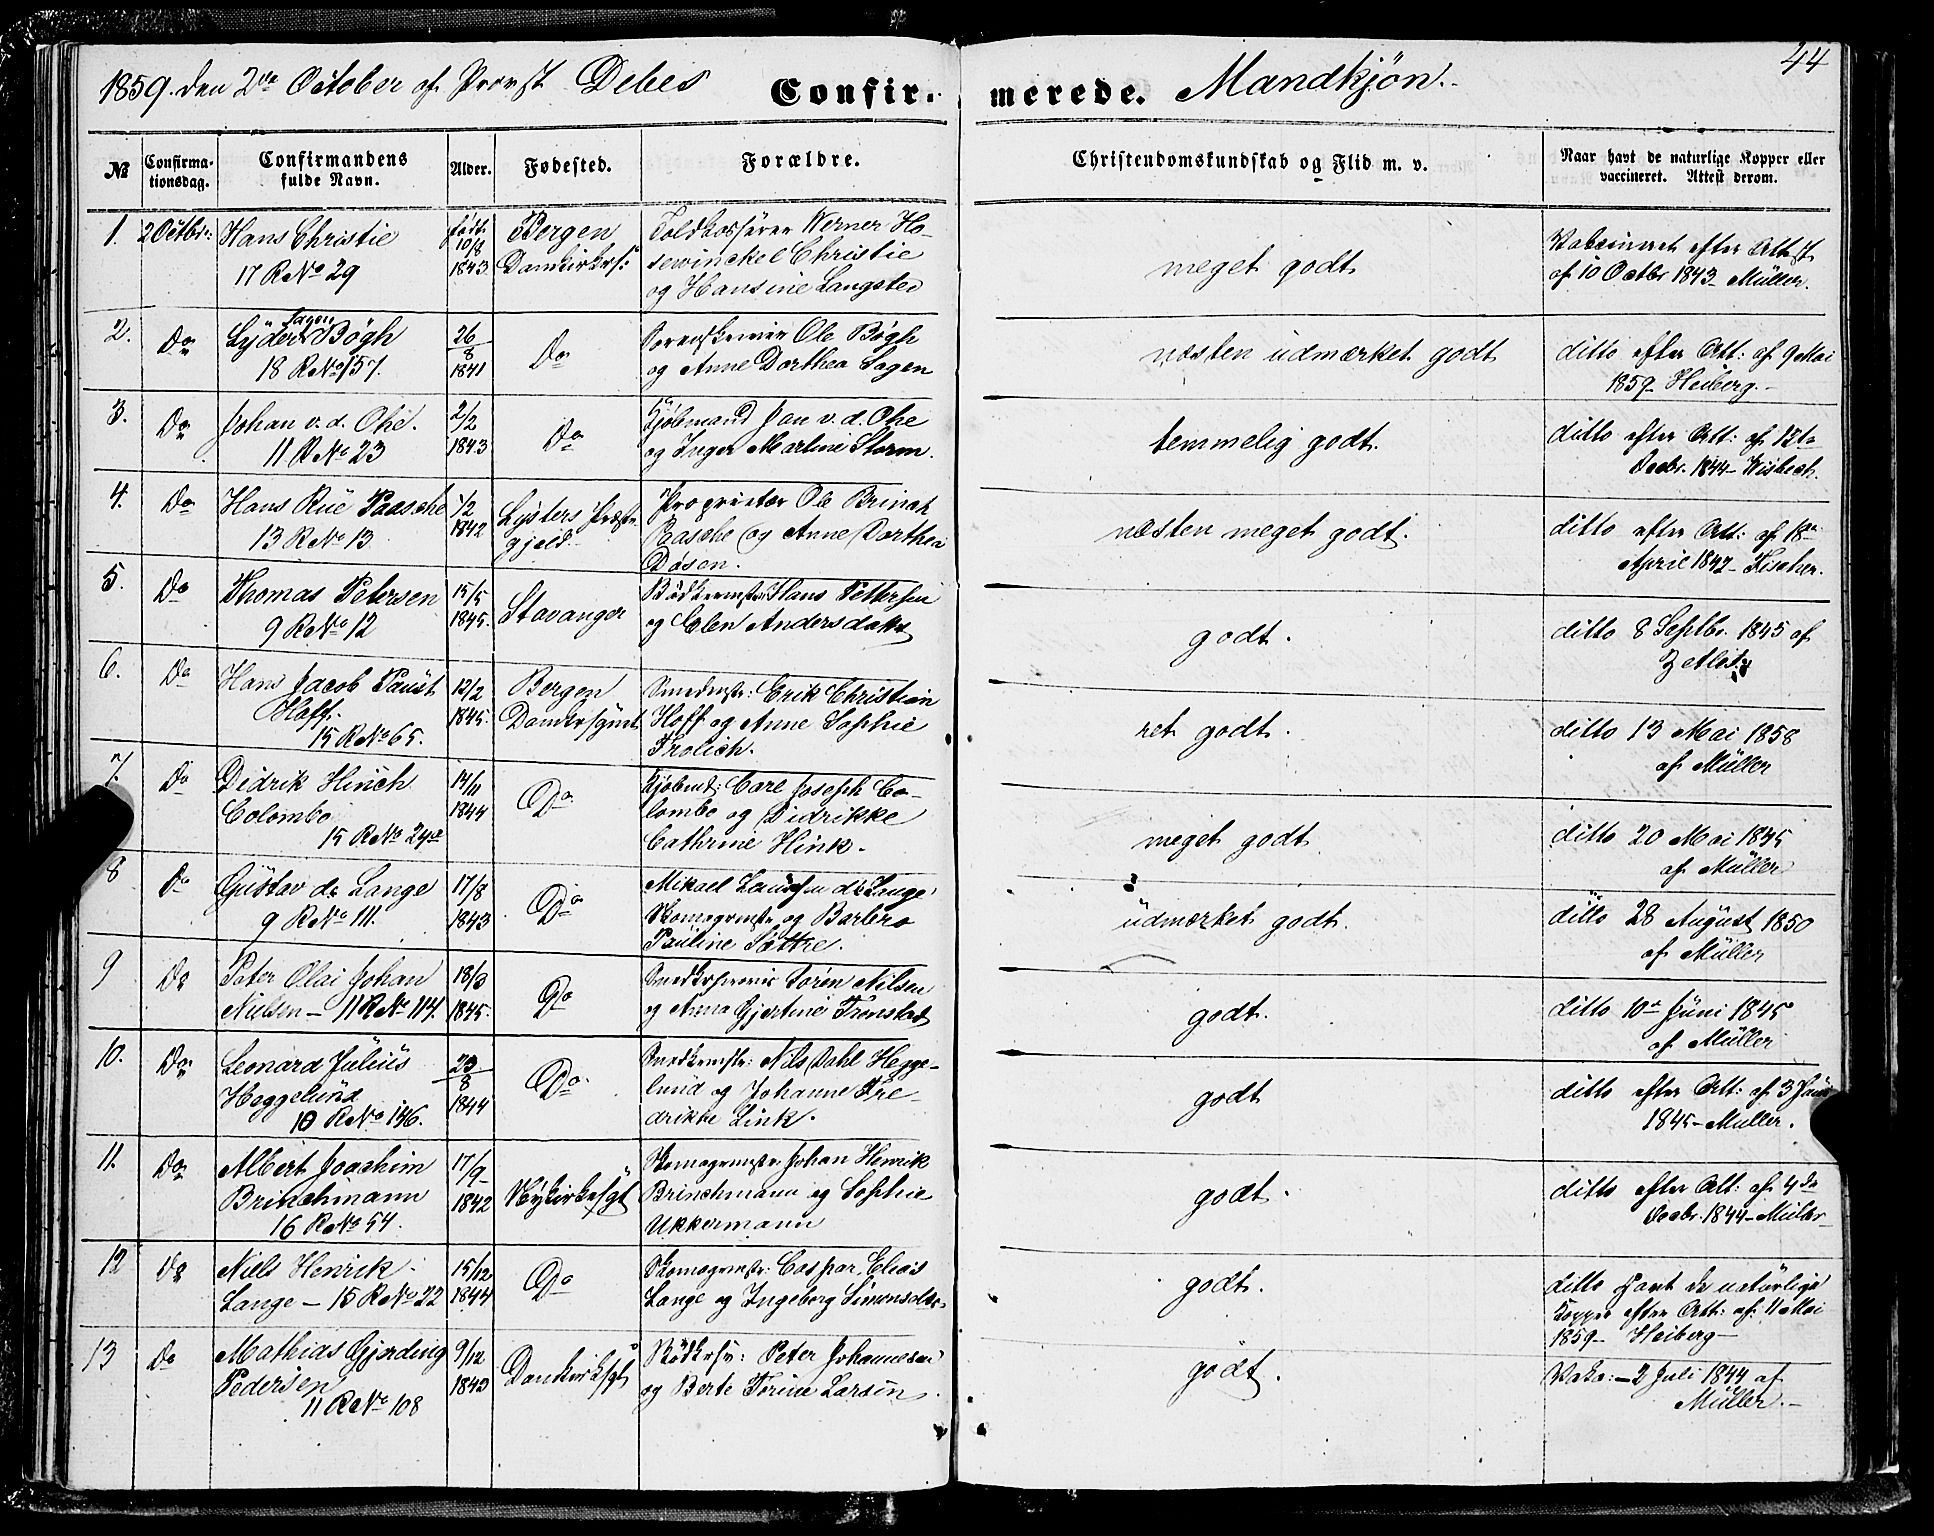 1859. den 2de October af Provst Debes Confir- merede. Mandkjøn.
44
No
Confirma-
tionsdag.
Confirmandens
fulde Navn.
Alder.
Fødested.
Forældre.
Christendomskundskab og Flid m. v.
Naar havt de naturlige Kopper eller
vaccineret. Attest derom.
1. 2 Octbr: Hans Christie
17 R No 29
født
10/8
1843
Bergen
Domkirks:
Werner Ho-
sewinckel Christie
og Hansine Langsted
meget godt
Vakcineret efter Attest
af 10 Octbr 1843 - Müller.
2. Do Lyder Sagen Bøgh
18 R No 157.
26/8
1841
Do
Sorenskriver Ole Bøgh
og Anne Dorthea Sagen
næsten üdmærket godt
ditto efter Att: af 9 Mai
1859 - Heiberg. -
3. Do Johan v. d. Ohe.
11 R No 23
2/2
1843
Do
Kjøbmand Jan v. d. Ohe
og Inger Martine Storm.
temmelig godt.
ditto efter Att: af 12te
Decbr. 1844 - Wisbech.
4. Do Hans Rüe Paasche
13 R No 13
1/2
1842
Lysters Præste-
gjeld.
Proprietær Ole Brinch
Paasche og Anne Dorthea
Døsen.
næsten meget godt.
ditto efter Att: af 18de
April 1842 - Fischer.
5. Do Thomas Petersen
9 R No 12
15/5
1845.
Stavanger
Bødkermstr: Hans Pettersen
og Elen Andersdatr
godt.
ditto 8 Septbr. 1845 af
Zetlitz
6. Do Hans Jacob Paüst
Hoff.
15 R No 65.
12/2
1845.
Bergen
Domkirksognet
Smedmstr: Erik Christian
Hoff og Anne Sophie
Frolich.
ret godt.
ditto 13 Mai 1858
af Müller
7. Do Didrik Hinch
Colombo
15 R No 24
14/11
1844
Do
Kjøbmd: Carl Joseph Co-
lombo og Didrikke
Cathrine Hink.
meget godt
ditto 20 Mai 1845
af Müller
8 Do Güstav de Lange
9 R No 111.
17/8
1843
Do
Mikael de Lange
Skomagermstr og Barbro
Paüline Sættre.
üdmærket godt.
ditto 28 Aügüst 1850
af Müller
9 Do Peter Olai Johan
Nielsen - 11 R No 114.
18/3
1845.
Do
Søren Nilsen
og Anna Gjertine Trønstad
godt.
ditto 10de Jüni 1845
af Müller
10. Do Leonard Jülius
Heggelünd
10 R No 146.
23/8
1844
Do
Snedkermstr: Nils Dahl Hegge-
lund og Johanne Fre-
drikke Link.
godt
ditto efter Att: af 3 Jüni
1845 - Muller.
11. Do Albert Joachim
Brinchmann
16 R No 54.
17/9
1842
Nykirkesgt
Skomagermstr. Johan Henrik
Brinchmann og Sophie
Ukkermann
godt.
ditto efter Att: af 4de
Decbr. 1844 - Müller
12 Do Niels Henrik
Lange - 15 R No 22
15/12
1844
Do
Skomagermstr: Caspar Elias
Lange og Ingeborg Simonsdtr.
godt.
ditto havt de natürlige
Kopper efter Att: af 11 Mai
1859 - Heiberg -
13 Do Mathias Gjerding
Pedersen
11 R No 108
9/12
1843
Domkirksgt
Bødkersv: Peter Johannesen
og Berte Torine Larsen
godt.
Vakc: - 2 Juli 1844 af
Müller. -